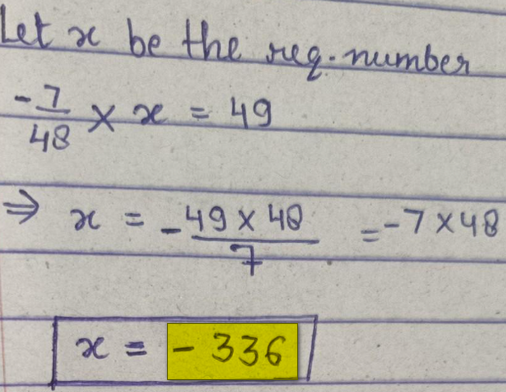 Let x be the req. number
-7/48 × x = 49
⇒ x = -49×48/7 = -7×48
x = -336